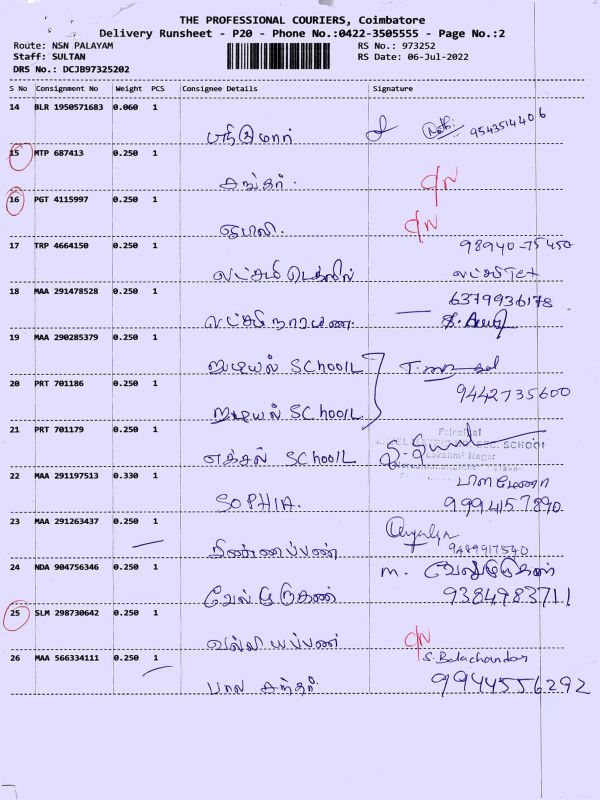 THE PROFESSIONAL COURIERS, Coimbatore
Delivery Runsheet - P20 - Phone No.:0422-3505555 - Page No.:2
Route: NSN PALAYAM RS No.: 973252
Staff: SULTAN RS Date: 06-Jul-2022
DRS No.: DCJB97325202
S No Consignment No Weight PCS Consignee Details Signature
14 BLR 1950571683 0.060 1
9543514406
15 MTP 687413 0.250 1
சங்கர். C/N
16 PGT 4115997 0.250 1
C/N
17 TRP 4664150 0.250 1
98940-75450
லட்சுமி
18 MAA 291478528 0.250 1
6379936178
லட்சுமி நாராயண.
19 MAA 290285379 0.250 1
SCHOOL
20 PRT 701186 0.250 1
9442735600
SCHOOL
21 PRT 701179 0.250 1
Principal
SCHOOL
எக்சல் SCHOOL
22 MAA 291197513 0.330 1
SOPHIA. 9994157890
23 MAA 291263437 0.250 1
9489917540
24 NDA 904756346 0.250 1
M. வேல்முருகன்
வேல்முருகன் 9384983711
25 SLM 298730642 0.250 1
வல்லியப்பன் C/N
26 MAA 566334111 0.250 1
S. Balachandar
பால சந்தர். 9944556292